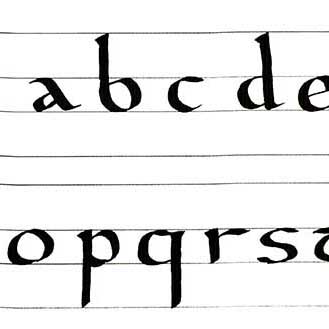 a b c d e
o p q r s t